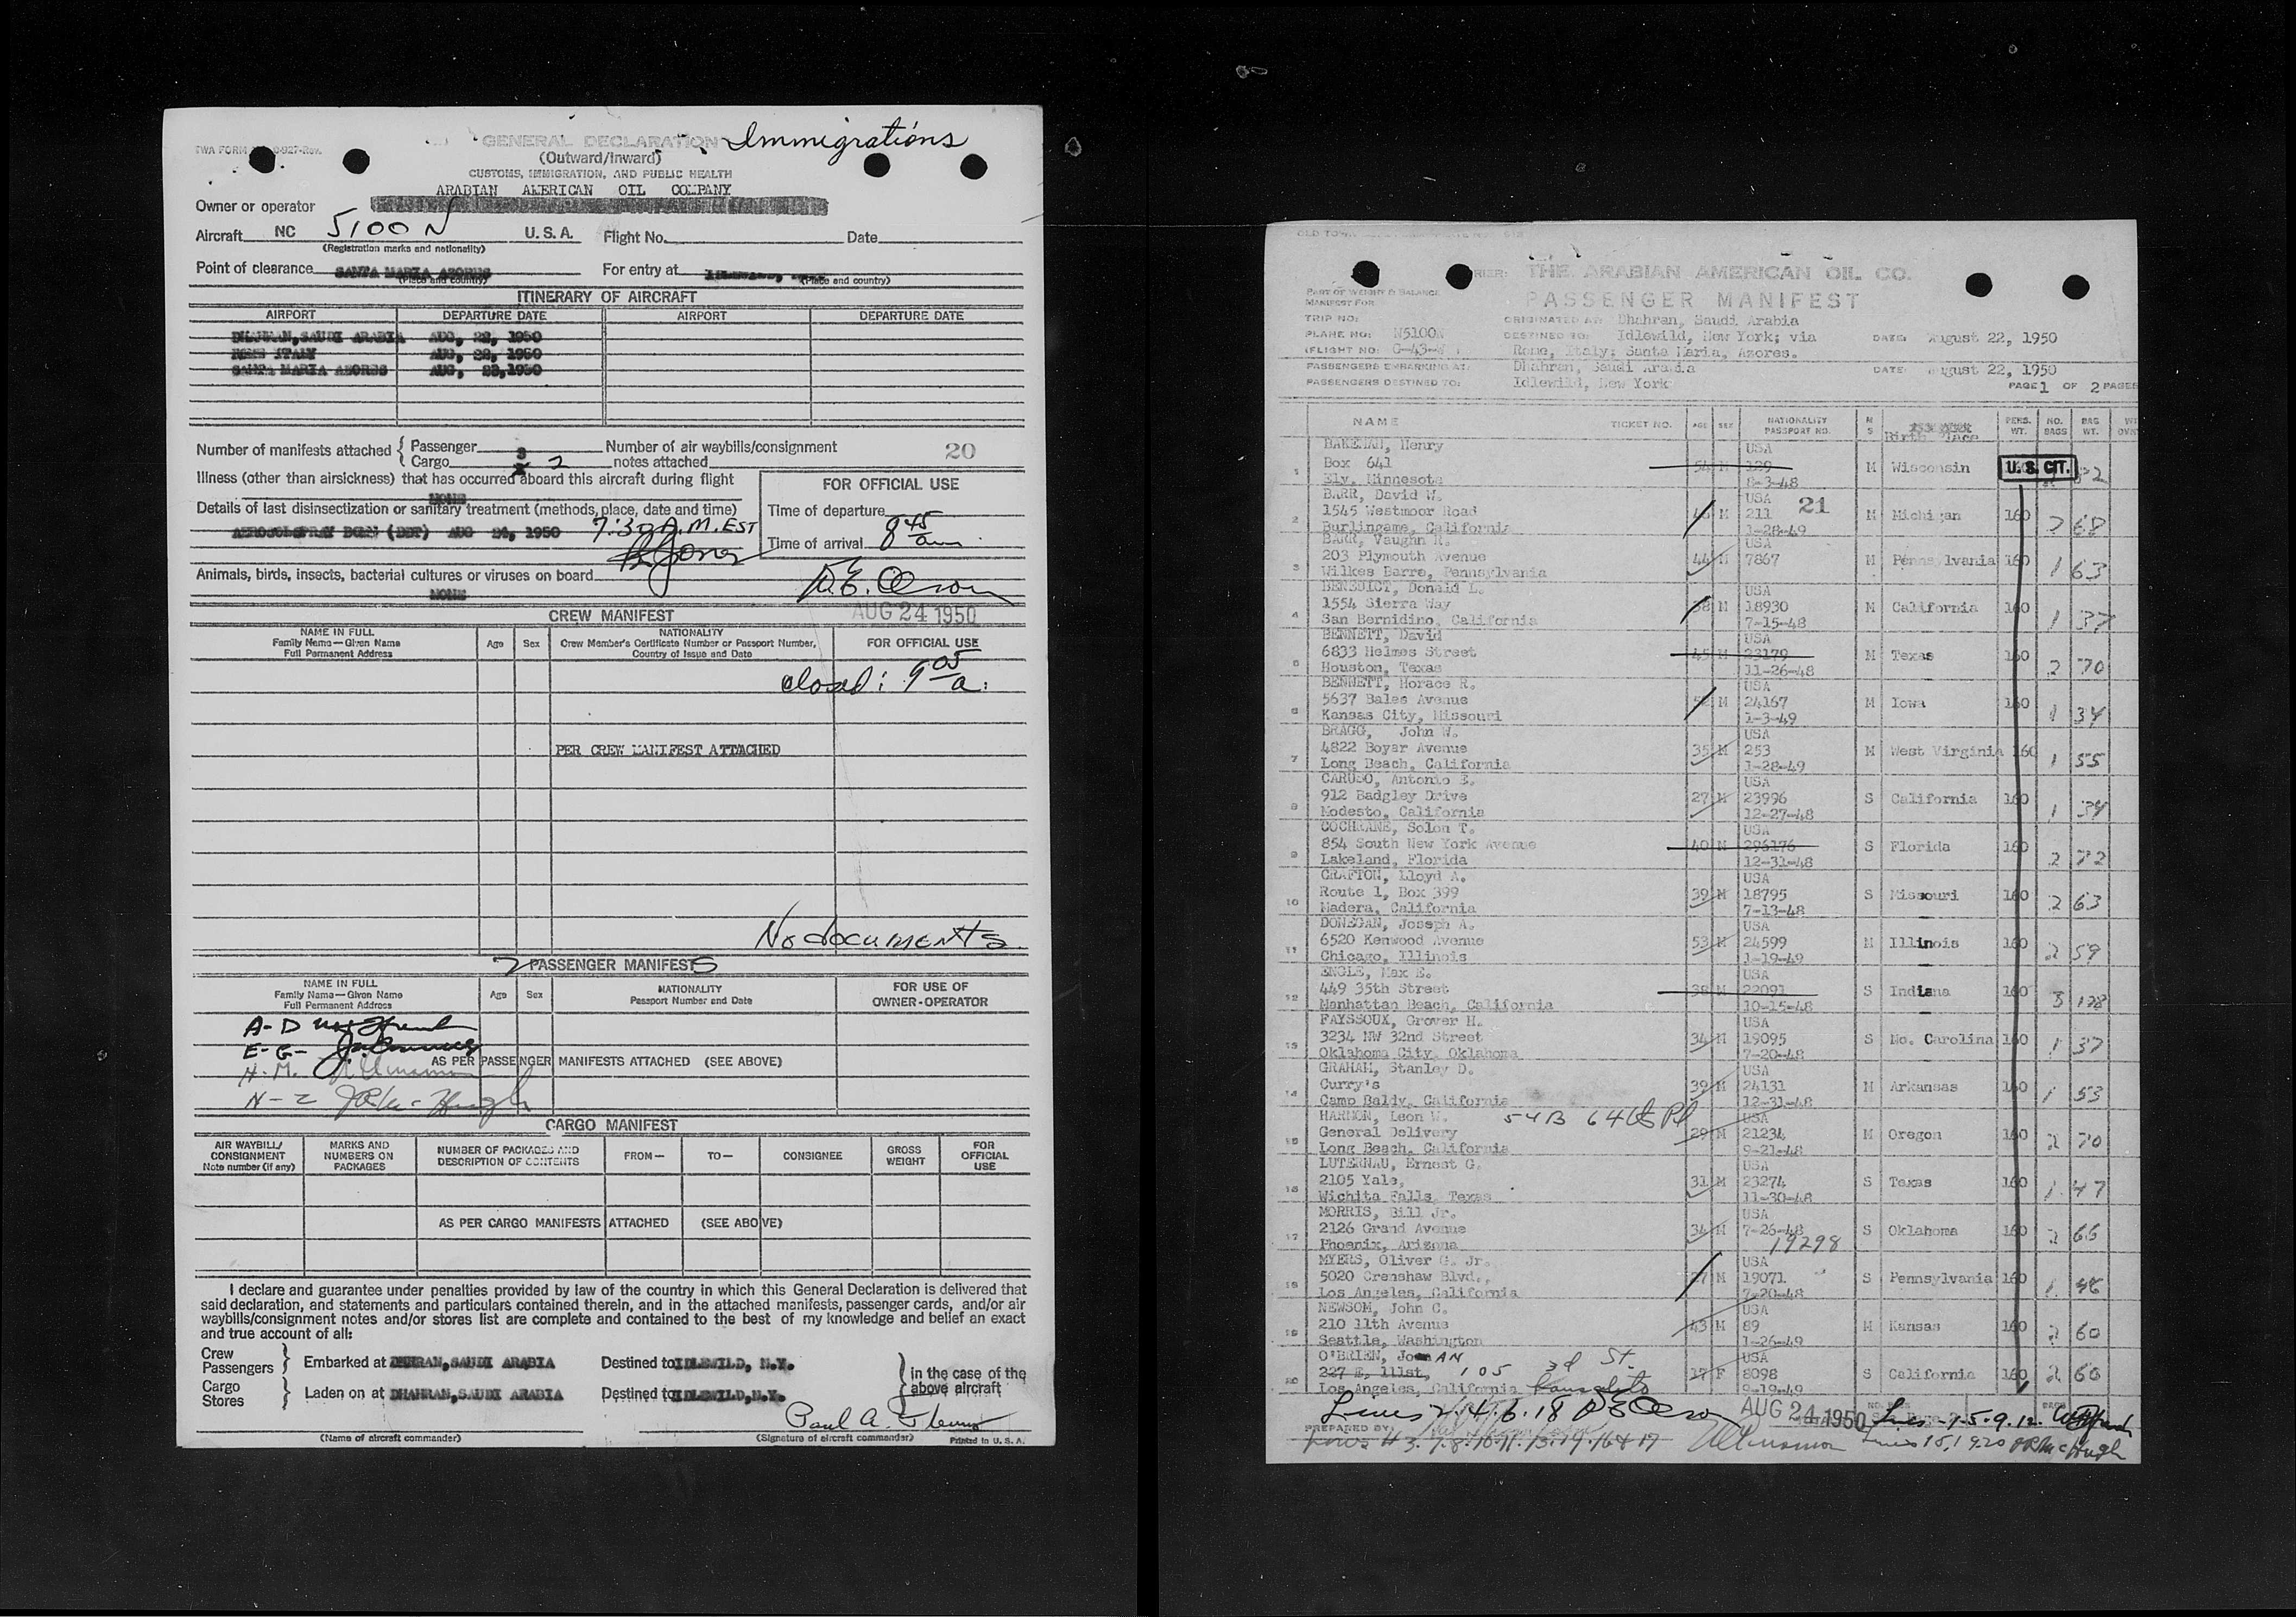 TWA FORM
GENERAL DECLARATION Immigrations
(Outward/Inward)
CUSTOMS, IMMIGRATION, AND PUBLIC HEALTH
ARABIAN AMERICAN OIL COMPANY
Owner or operator
Aircraft NC 5100 N U.S.A. Flight No. Date
(Registration marks and nationality)
Point of clearance SANTA MARIA AZORES For entry at
(Place and country) (Place and country)
ITINERARY OF AIRCRAFT
AIRPORT DEPARTURE DATE AIRPORT DEPARTURE DATE
DHAHRAN, SAUDI ARABIA AUG, 22, 1950
ROME ITALY AUG, 22, 1950
SANTA MARIA AZORES AUG, 23, 1950
Number of manifests attached { Passenger Number of air waybills/consignment 20
Cargo 2 notes attached
Illness (other than airsickness) that has occurred aboard this aircraft during flight
NONE
FOR OFFICIAL USE
Details of last disinsectization or sanitary treatment (methods, place, date and time)
Time of departure
AEROSOL SPRAY BOMB (DDT) AUG 24, 1950 7:30 A.M. EST
Time of arrival 8 45 am
Animals, birds, insects, bacterial cultures or viruses on board
NONE
D.E. Olson
AUG 24 1950
CREW MANIFEST
NAME IN FULL
Family Name—Given Name
Full Permanent Address
Age Sex
NATIONALITY
Crew Member's Certificate Number or Passport Number,
Country of Issue and Date
FOR OFFICIAL USE
closed: 9 05 a.
PER CREW MANIFEST ATTACHED
No documents
2 PASSENGER MANIFESTS
NAME IN FULL
Family Name—Given Name
Full Permanent Address
Age Sex
NATIONALITY
Passport Number and Date
FOR USE OF
OWNER-OPERATOR
A-D
E-G-
AS PER PASSENGER MANIFESTS ATTACHED (SEE ABOVE)
H-M.
N-Z
CARGO MANIFEST
AIR WAYBILL/
CONSIGNMENT
Note number (if any)
MARKS AND
NUMBERS ON
PACKAGES
NUMBER OF PACKAGES AND
DESCRIPTION OF CONTENTS
FROM—
TO—
CONSIGNEE
GROSS
WEIGHT
FOR
OFFICIAL
USE
AS PER CARGO MANIFESTS ATTACHED (SEE ABOVE)
I declare and guarantee under penalties provided by law of the country in which this General Declaration is delivered that
said declaration, and statements and particulars contained therein, and in the attached manifests, passenger cards, and/or air
waybills/consignment notes and/or stores list are complete and contained to the best of my knowledge and belief an exact
and true account of all:
Crew
Passengers } Embarked at DHAHRAN, SAUDI ARABIA Destined to IDLEWILD, N.Y.
Cargo
Stores } Laden on at DHAHRAN, SAUDI ARABIA Destined to IDLEWILD, N.Y.
} in the case of the
above aircraft
Paul A.
(Name of aircraft commander) (Signature of aircraft commander) Printed in U.S.A.
THE ARABIAN AMERICAN OIL CO.
PART OF WEIGHT & BALANCE
MANIFEST FOR
PASSENGER MANIFEST
TRIP NO: ORIGINATED AT: Dhahran, Saudi Arabia
PLANE NO: N5100N DESTINED TO: Idlewild, New York; via DATE: August 22, 1950
(FLIGHT NO: Rome, Italy; Santa Maria, Azores.
PASSENGERS EMBARKING AT: Dhahran, Saudi Arabia DATE: August 22, 1950
PASSENGERS DESTINED TO: Idlewild, New York PAGE 1 OF 2 PAGES
NAME TICKET NO. AGE SEX NATIONALITY PASSPORT NO. M S Birth Place PERS. WT. NO. BAGS BAG WT.
BAKEMAN, Henry USA
1 Box 641 54 M 129 M Wisconsin U.S. CIT.
Ely, Minnesota 8-3-48
BARR, David W. USA 21
2 1545 Westmoor Road M 211 M Michigan 160 2 68
Burlingame, California 1-28-49
BARR, Vaughn R. USA
3 203 Plymouth Avenue 44 M 7867 M Pennsylvania 160 1 63
Wilkes Barre, Pennsylvania
BENEDICT, Donald L. USA
4 1554 Sierra Way 38 M 18930 M California 160 1 37
San Bernidino, California 7-15-48
BENNETT, David USA
5 6833 Helmes Street 45 M 23179 M Texas 160 2 70
Houston, Texas 11-26-48
BENNETT, Horace R. USA
6 5637 Bales Avenue M 24167 M Iowa 160 1 34
Kansas City, Missouri 1-3-49
BRAGG, John W. USA
7 4822 Boyar Avenue 35 M 253 M West Virginia 160 1 55
Long Beach, California 1-28-49
CARUSO, Antonio E. USA
8 912 Badgley Drive 27 M 23996 S California 160 1 34
Modesto, California 12-27-48
COCHRANE, Solon T. USA
9 854 South New York Avenue 40 M 296176 S Florida 160 2 72
Lakeland, Florida 12-31-48
CRAFTON, Lloyd A. USA
10 Route 1, Box 399 39 M 18795 S Missouri 160 2 63
Madera, California 7-13-48
DONEGAN, Joseph A. USA
11 6520 Kenwood Avenue 53 M 24599 M Illinois 160 2 59
Chicago, Illinois 1-19-49
ENGLE, Max E. USA
12 449 35th Street 38 M 22091 S Indiana 160 3 128
Manhattan Beach, California 10-15-48
FAYSSOUX, Grover H. USA
13 3234 NW 32nd Street 34 M 19095 S No. Carolina 160 1 37
Oklahoma City, Oklahoma 7-20-48
GRAHAM, Stanley D. USA
14 Curry's 39 M 24131 M Arkansas 160 1 53
Camp Baldy, California 12-31-48
HARMON, Leon W. 54B 64th Pl USA
15 General Delivery 29 M 21234 M Oregon 160 2 70
Long Beach, California 9-21-48
LUTERNAU, Ernest G. USA
16 2105 Yale, 31 M 23274 S Texas 160 1 47
Wichita Falls, Texas 11-30-48
MORRIS, Bill Jr. USA
17 2126 Grand Avenue 34 M 7-26-48 S Oklahoma 160 2 66
Phoenix, Arizona 19298
MYERS, Oliver G. Jr. USA
18 5020 Crenshaw Blvd., M 19071 S Pennsylvania 160 1 46
Los Angeles, California 7-20-48
NEWSOM, John C. USA
19 210 11th Avenue 43 M 89 M Kansas 160 2 60
Seattle, Washington 1-26-49
O'BRIEN, JoAN USA
20 227 E. 111st, 105 3d St. 17 F 8098 S California 160 2 60
Los Angeles, California 9-19-49
Lines 2.4.6.18 D E Olson AUG 24 1950 Lines-1.5.9.12.
PREPARED BY
Lines 15,19,20